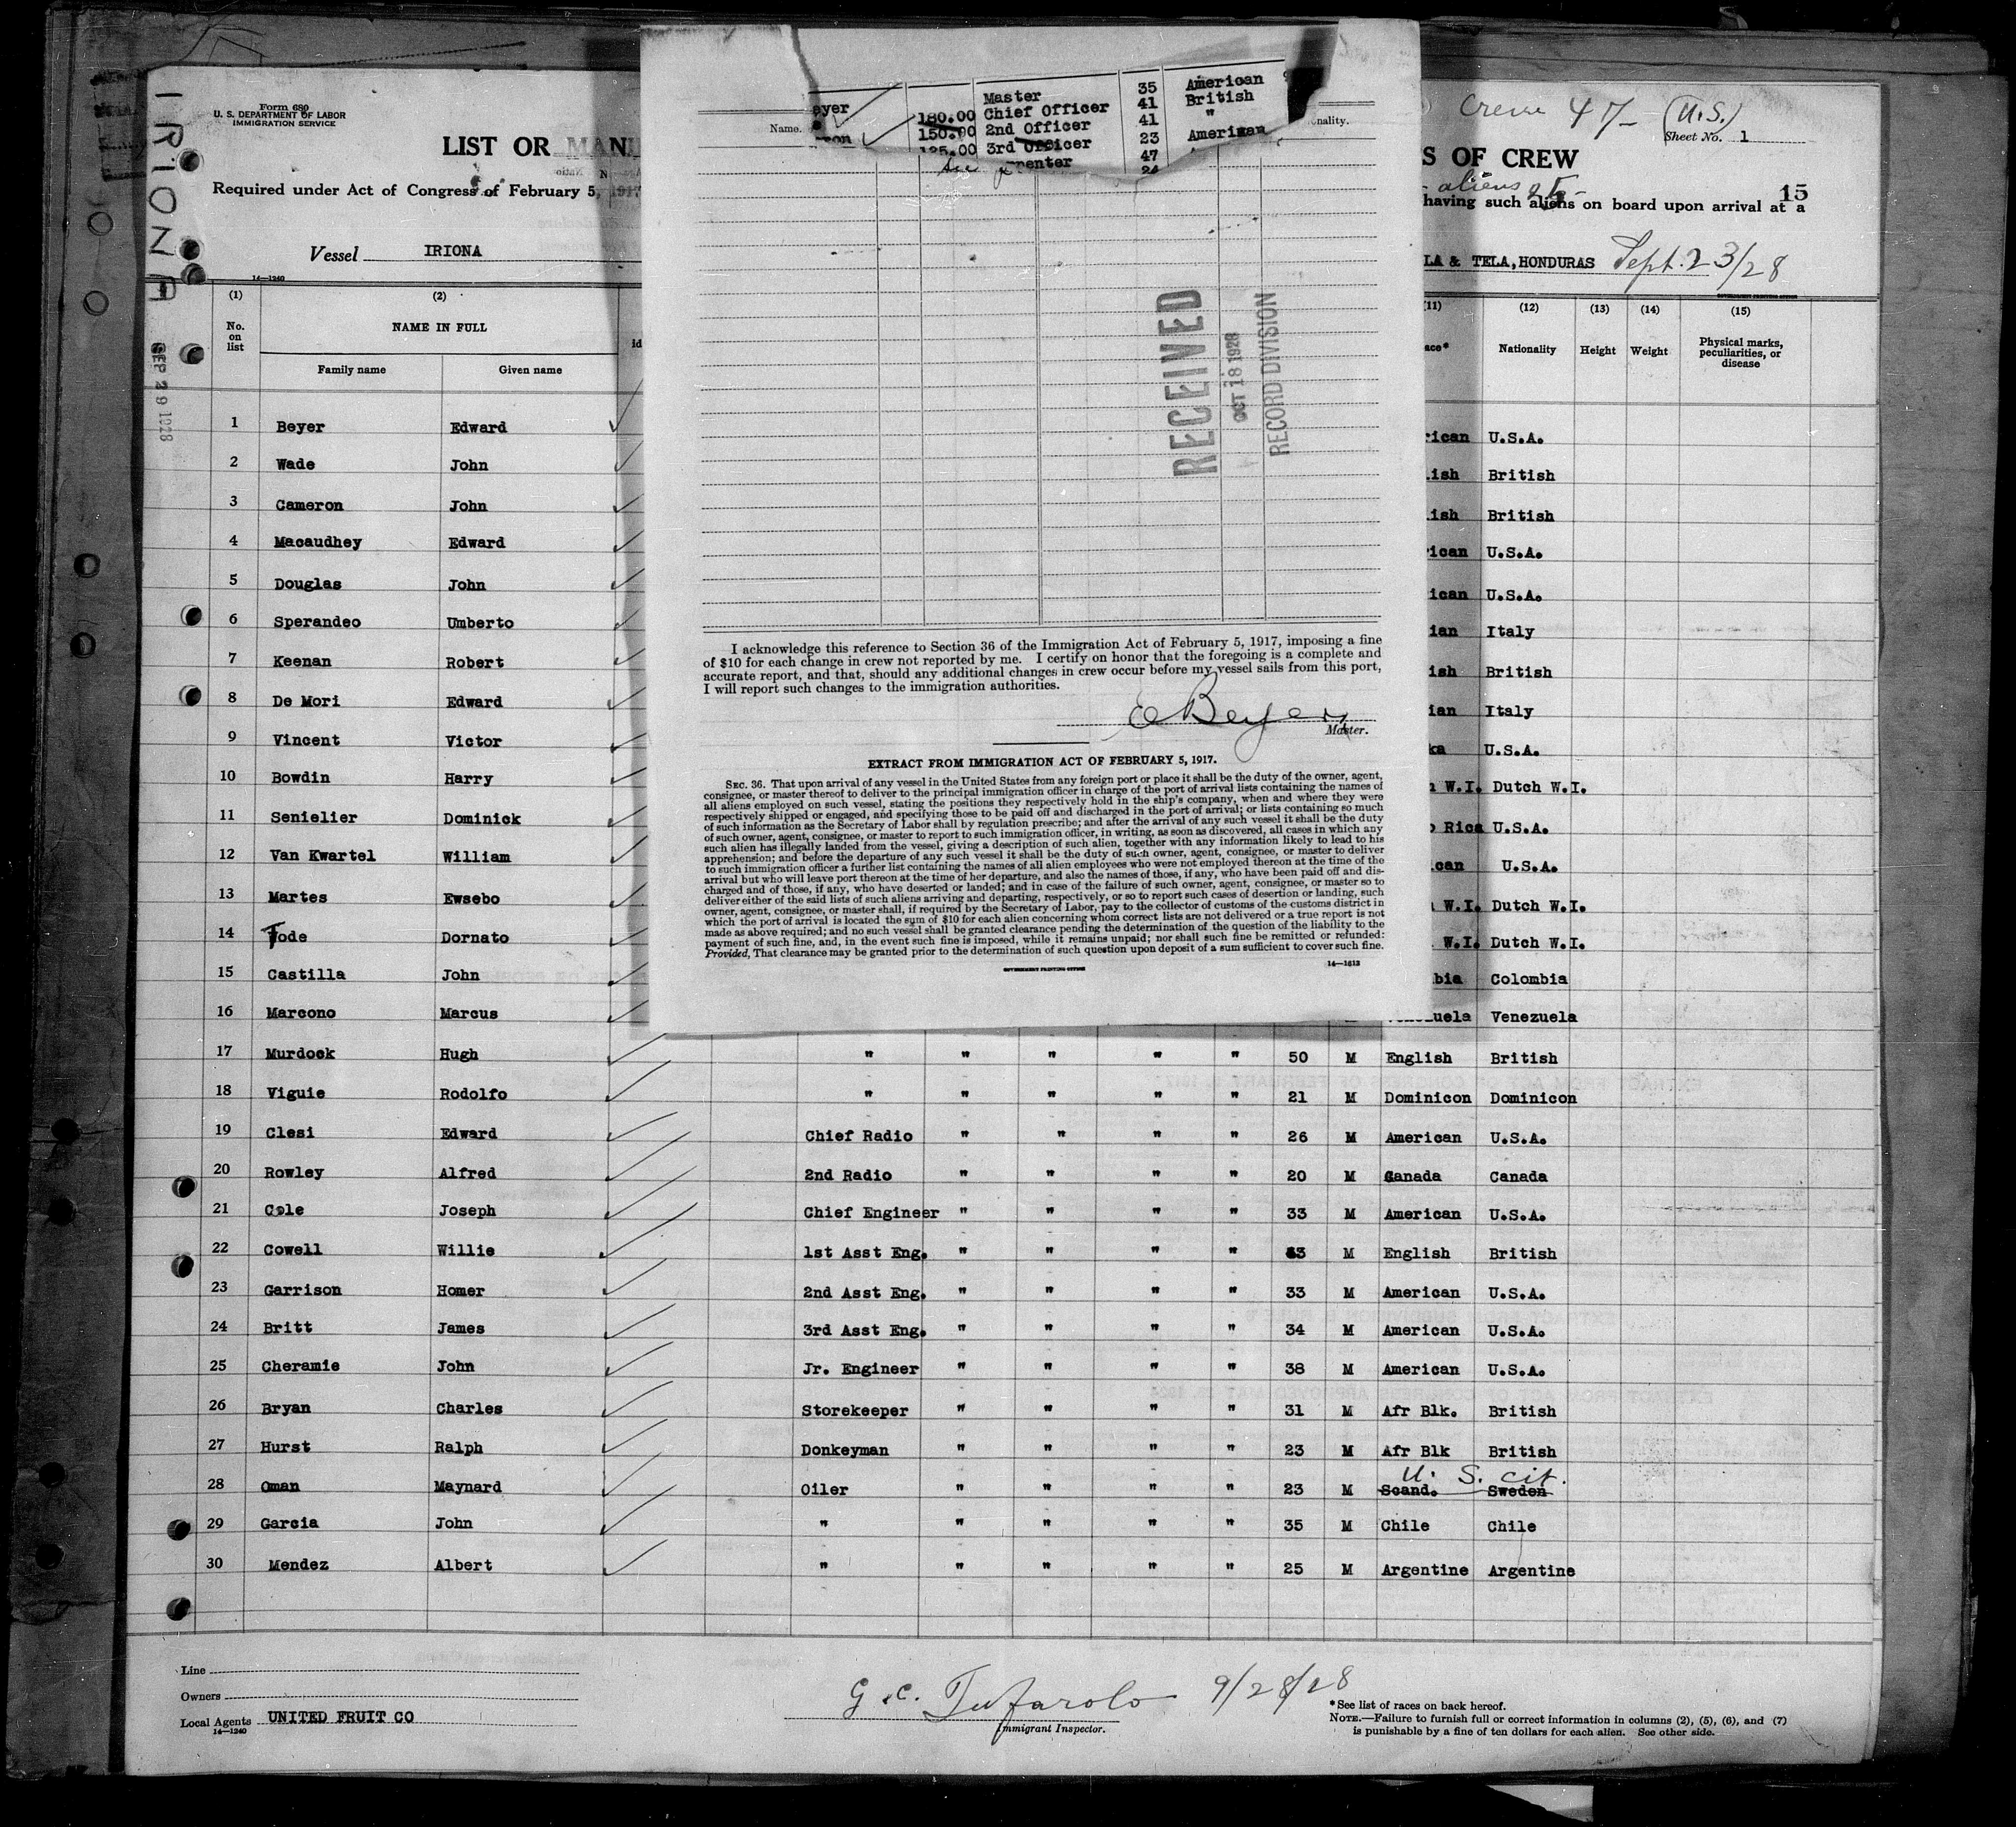 IRIONA
SEP 29 1928
Form 680
U. S. DEPARTMENT OF LABOR
IMMIGRATION SERVICE
LIST OR MANI
Required under Act of Congress of February 5, 1917
Vessel IRIONA
14—1240
Crew 47— (U.S.)
Sheet No. 1
S OF CREW
aliens 25-
15
having such aliens on board upon arrival at a
LA & TELA, HONDURAS Sept. 23/28
GOVERNMENT PRINTING OFFICE
(1) (2) (11) (12) (13) (14) (15)
No. on list NAME IN FULL id ace* Nationality Height Weight Physical marks, peculiarities, or disease
Family name Given name
eyer 180.00 Master 35 American
150.00 Chief Officer 41 British
125.00 2nd Officer 41 "
3rd Officer 23 American
penter 47
24
Name. nality.
RECEIVED
OCT 18 1928
RECORD DIVISION
I acknowledge this reference to Section 36 of the Immigration Act of February 5, 1917, imposing a fine
of $10 for each change in crew not reported by me. I certify on honor that the foregoing is a complete and
accurate report, and that, should any additional changes in crew occur before my vessel sails from this port,
I will report such changes to the immigration authorities.
E Beyer
Master.
EXTRACT FROM IMMIGRATION ACT OF FEBRUARY 5, 1917.
SEC. 36. That upon arrival of any vessel in the United States from any foreign port or place it shall be the duty of the owner, agent,
consignee, or master thereof to deliver to the principal immigration officer in charge of the port of arrival lists containing the names of
all aliens employed on such vessel, stating the positions they respectively hold in the ship's company, when and where they were
respectively shipped or engaged, and specifying those to be paid off and discharged in the port of arrival; or lists containing so much
of such information as the Secretary of Labor shall by regulation prescribe; and after the arrival of any such vessel it shall be the duty
of such owner, agent, consignee, or master to report to such immigration officer, in writing, as soon as discovered, all cases in which any
such alien has illegally landed from the vessel, giving a description of such alien, together with any information likely to lead to his
apprehension; and before the departure of any such vessel it shall be the duty of such owner, agent, consignee, or master to deliver
to such immigration officer a further list containing the names of all alien employees who were not employed thereon at the time of the
arrival but who will leave port thereon at the time of her departure, and also the names of those, if any, who have been paid off and dis-
charged and of those, if any, who have deserted or landed; and in case of the failure of such owner, agent, consignee, or master so to
deliver either of the said lists of such aliens arriving and departing, respectively, or so to report such cases of desertion or landing, such
owner, agent, consignee, or master shall, if required by the Secretary of Labor, pay to the collector of customs of the customs district in
which the port of arrival is located the sum of $10 for each alien concerning whom correct lists are not delivered or a true report is not
made as above required; and no such vessel shall be granted clearance pending the determination of the question of the liability to the
payment of such fine, and, in the event such fine is imposed, while it remains unpaid; nor shall such fine be remitted or refunded:
Provided, That clearance may be granted prior to the determination of such question upon deposit of a sum sufficient to cover such fine.
GOVERNMENT PRINTING OFFICE 14—1613
1 Beyer Edward rican U.S.A.
2 Wade John lish British
3 Cameron John lish British
4 Macaudhey Edward rican U.S.A.
5 Douglas John ican U.S.A.
6 Sperandeo Umberto ian Italy
7 Keenan Robert ish British
8 De Mori Edward ian Italy
9 Vincent Victor ka U.S.A.
10 Bowdin Harry W.I. Dutch W.I.
11 Senielier Dominick o Rica U.S.A.
12 Van Kwartel William can U.S.A.
13 Martes Ewsebo W.I. Dutch W.I.
14 Tode Dornato W.I. Dutch W.I.
15 Castilla John bia Colombia
16 Marcono Marcus uela Venezuela
17 Murdock Hugh " " " " " 50 M English British
18 Viguie Rodolfo " " " " " 21 M Dominicon Dominicon
19 Clesi Edward Chief Radio " " " " 26 M American U.S.A.
20 Rowley Alfred 2nd Radio " " " " 20 M Canada Canada
21 Cole Joseph Chief Engineer " " " " 33 M American U.S.A.
22 Cowell Willie 1st Asst Eng. " " " " 43 M English British
23 Garrison Homer 2nd Asst Eng. " " " " 33 M American U.S.A.
24 Britt James 3rd Asst Eng. " " " " 34 M American U.S.A.
25 Cheramie John Jr. Engineer " " " " 38 M American U.S.A.
26 Bryan Charles Storekeeper " " " " 31 M Afr Blk. British
27 Hurst Ralph Donkeyman " " " " 23 M Afr Blk British
U. S. cit.
28 Oman Maynard Oiler " " " " 23 M Scand. Sweden
29 Garcia John " " " " " 35 M Chile Chile
30 Mendez Albert " " " " " 25 M Argentine Argentine
Line
Owners
Local Agents UNITED FRUIT CO
14—1240
G. C. Tufarolo 9/28/28
Immigrant Inspector.
*See list of races on back hereof.
NOTE.—Failure to furnish full or correct information in columns (2), (5), (6), and (7)
is punishable by a fine of ten dollars for each alien. See other side.